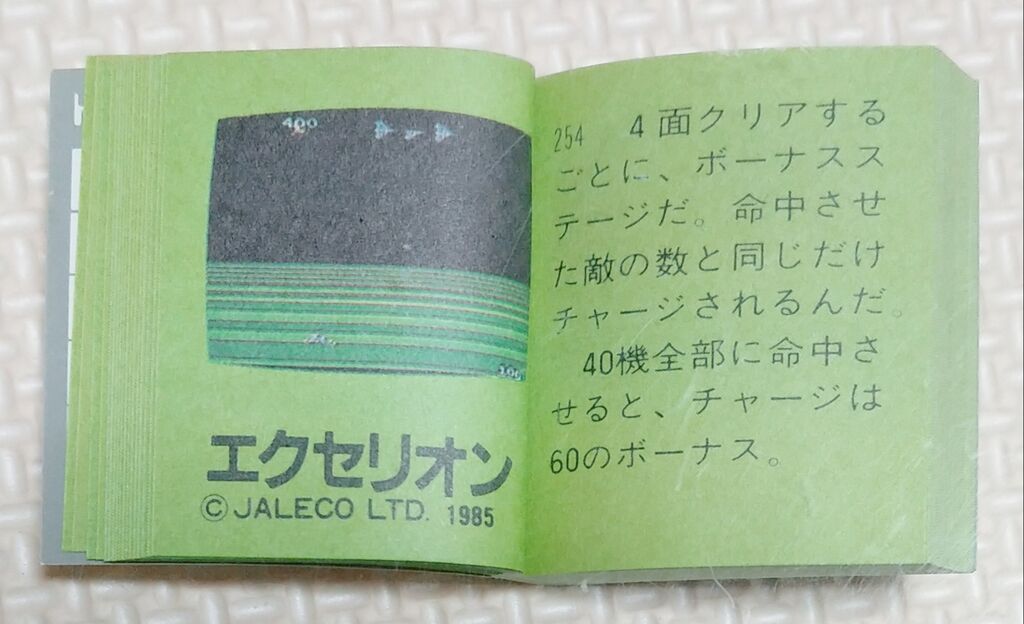 400
100
エクセリオン
© JALECO LTD. 1985
254 4面クリアする
ごとに、ボーナスス
テージだ。命中させ
た敵の数と同じだけ
チャージされるんだ。
40機全部に命中さ
せると、チャージは
60のボーナス。